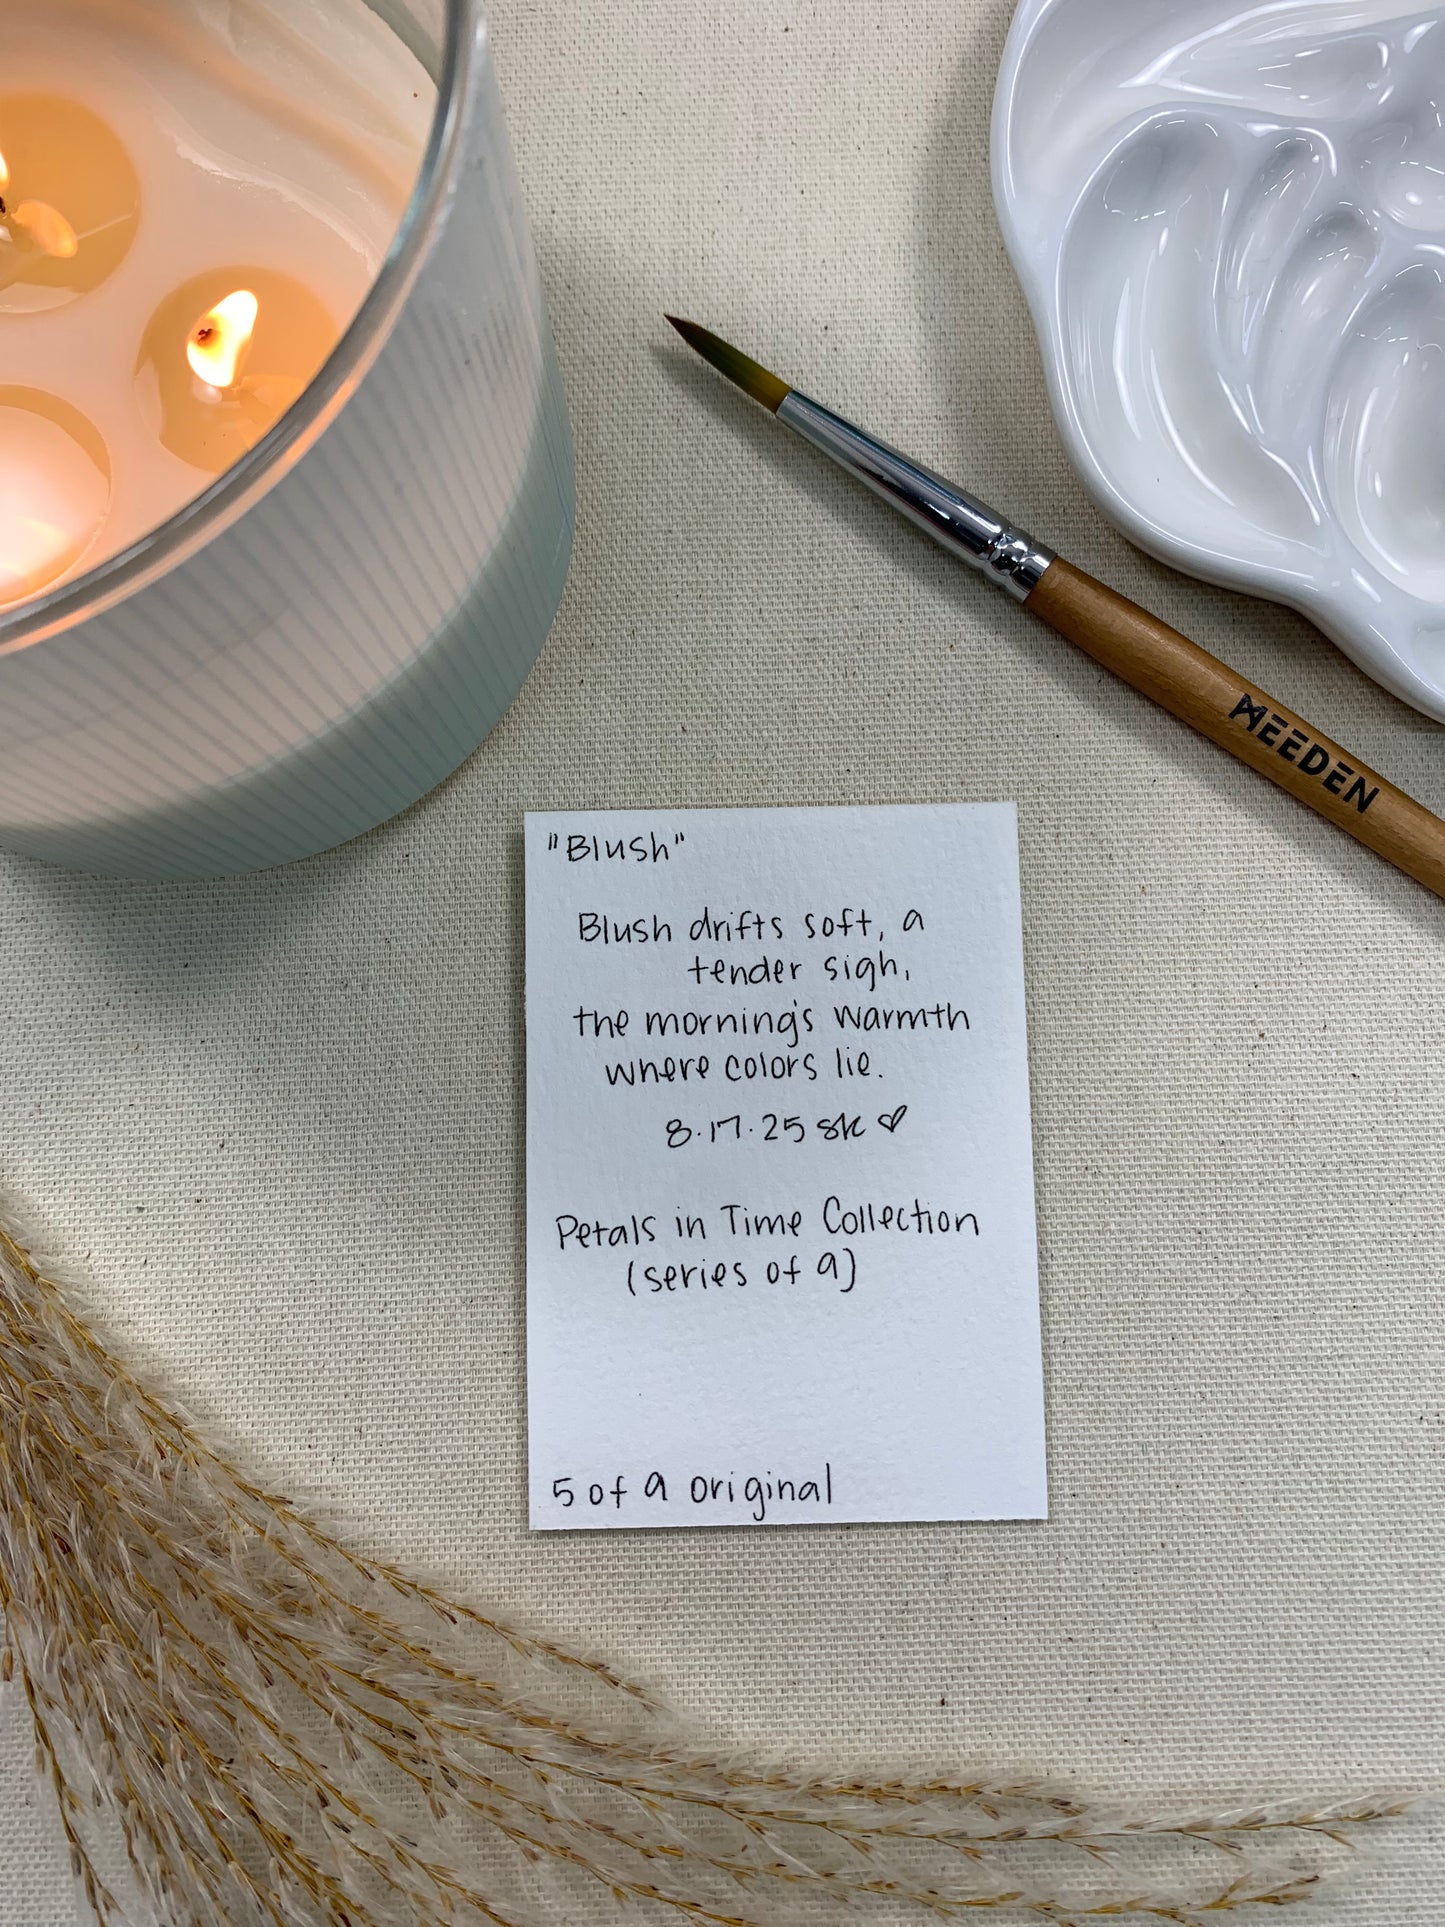 MEEDEN
"Blush"
Blush drifts soft, a
tender sigh,
the morning's warmth
where colors lie.
8.17.25 SK ♡
Petals in Time Collection
(series of 9)
5 of 9 original